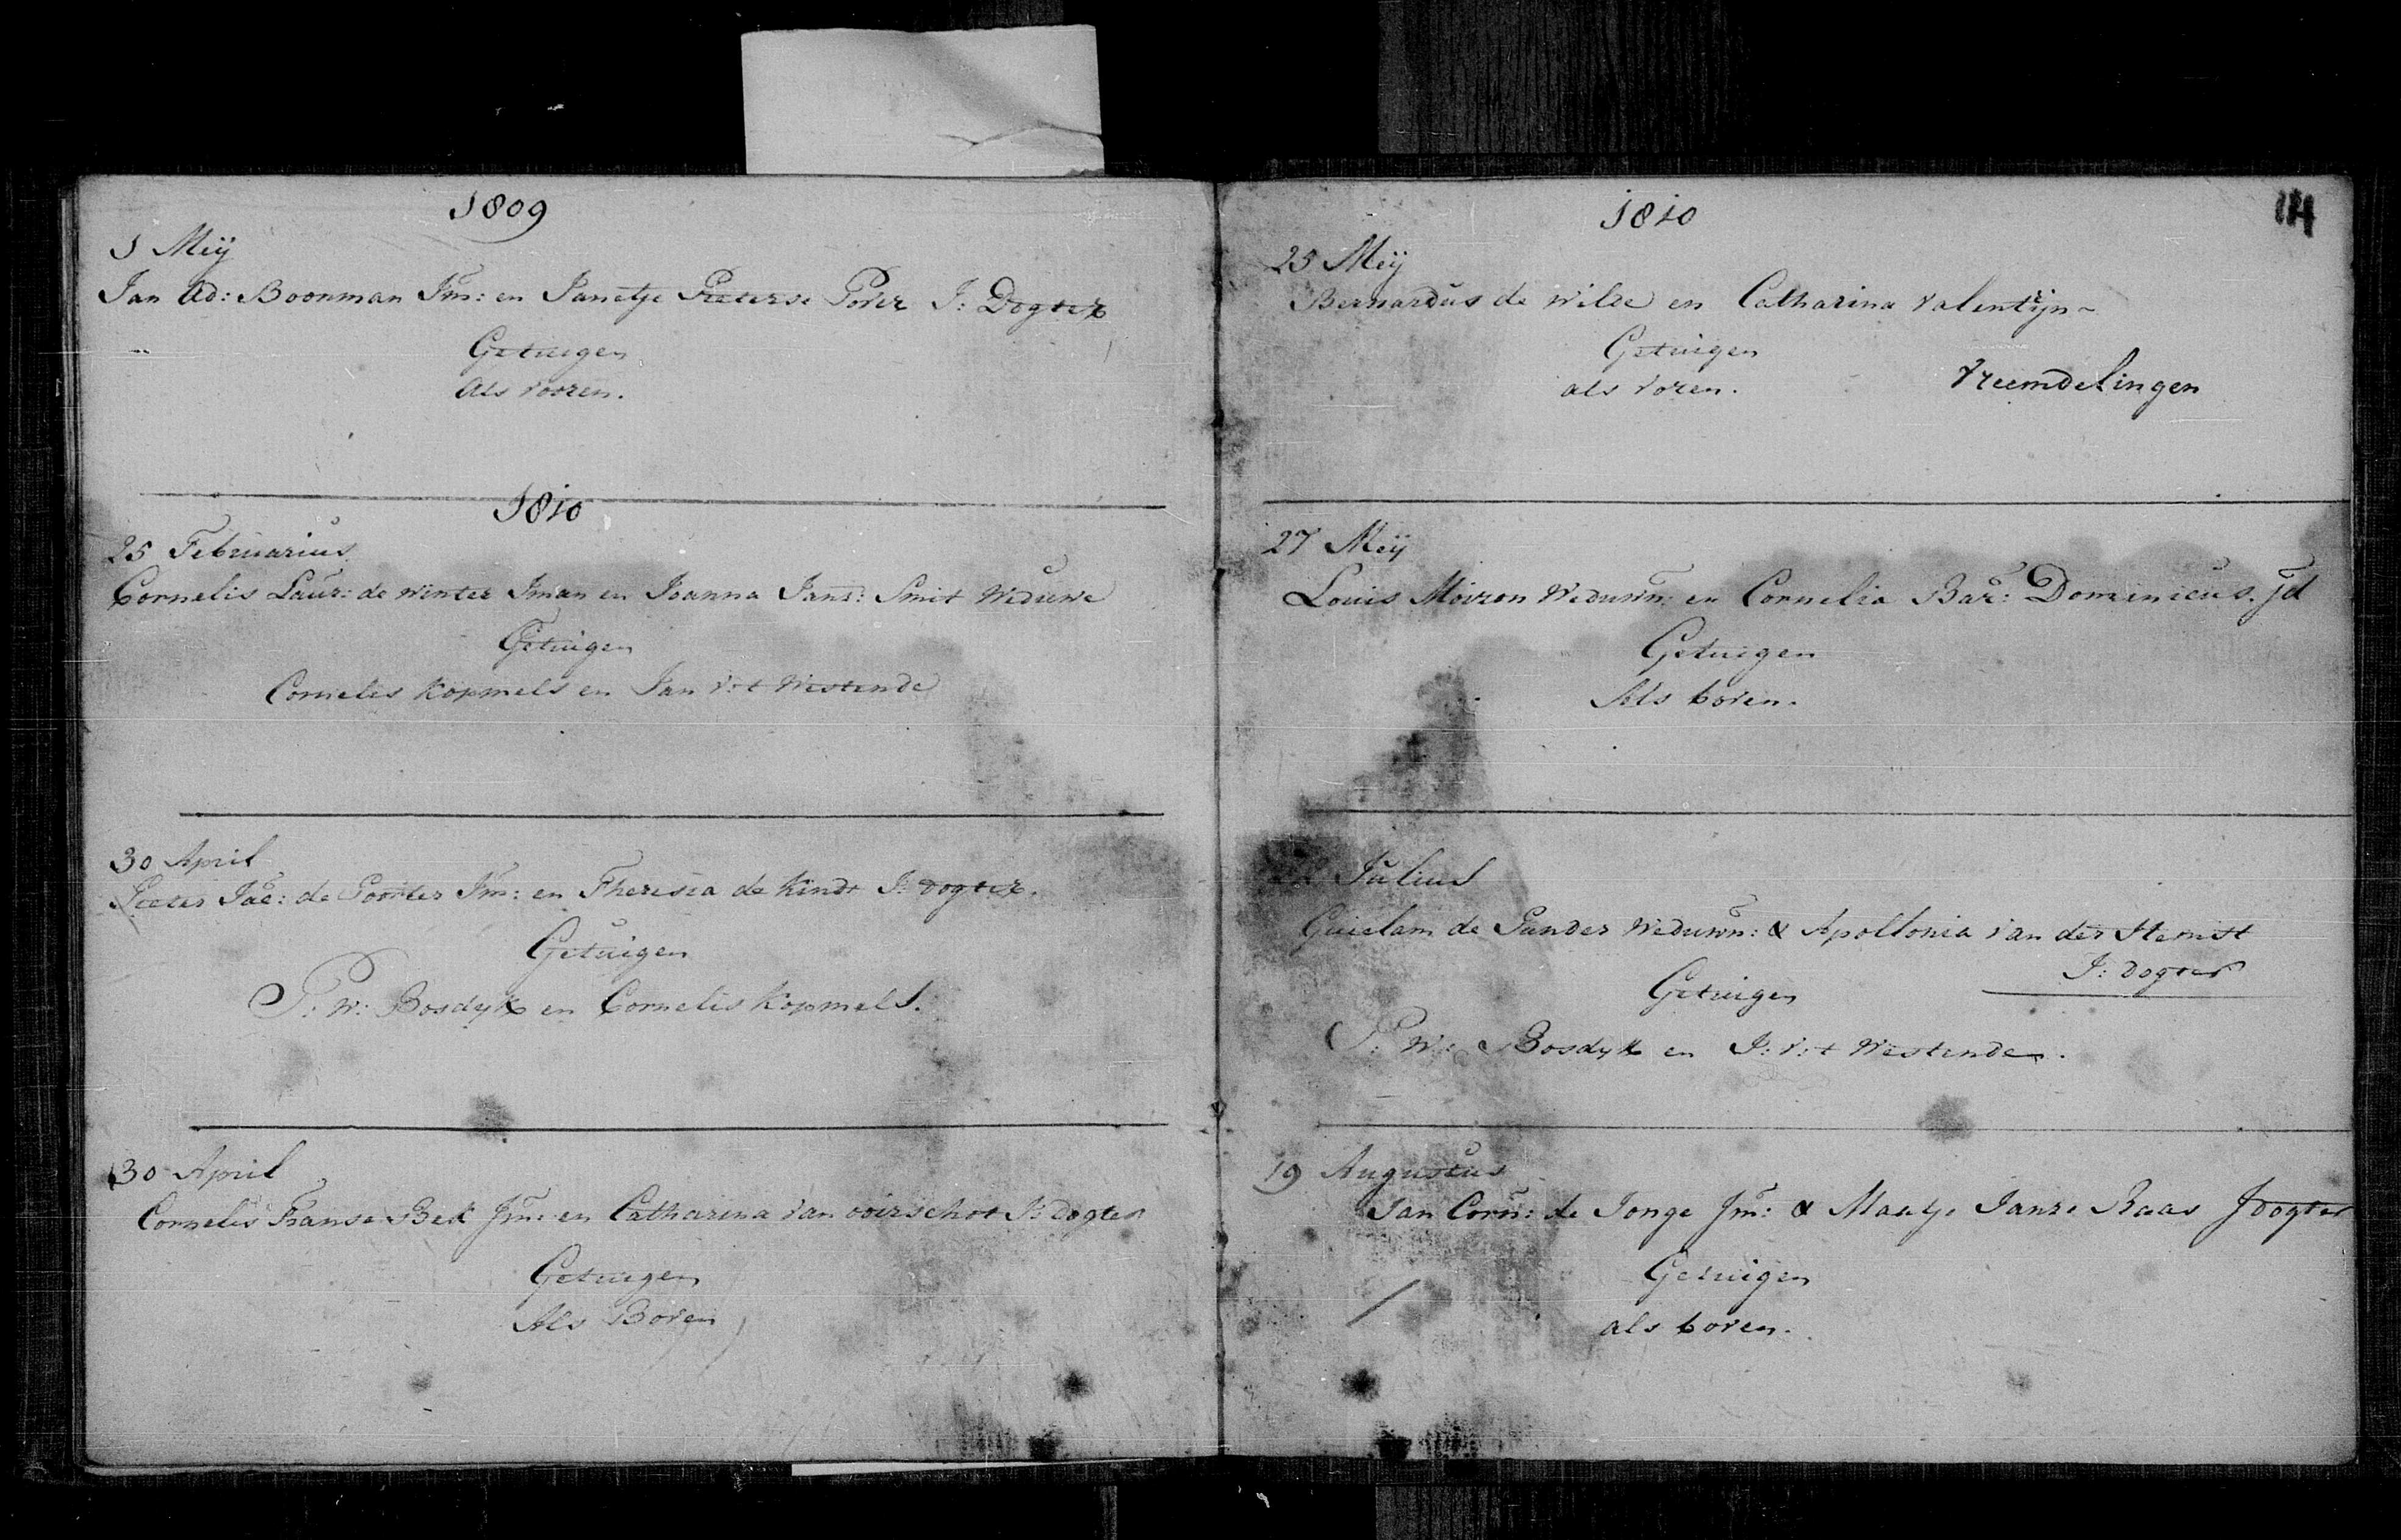 1809
1 Meÿ
Jan Ad: Boonman Jm: en Janetje Pieterse Pover J: Dogter
Getuigen
Als vooren.
1810
25 Februarius
Cornelis Laur: de Winter Jman en Joanna Jans: Smit Weduwe
Getuigen
Cornelis Kopmels en Jan v:t Westende
30 April
Pieter Jac: de Poorter Jm: en Theresia de Kindt J: dogter.
Getuigen
P: W: Bosdyk en Cornelis Kopmels.
30 April
Cornelis Franse Bek Jm: en Catharina van ooirschot J: Dogter
Getuigen
Als Boven
1810
114
25 Meÿ
Bernardus de Wilde en Catharina valentijn
Getuigen
als voren. Vreemdelingen
27 Meÿ
Louis Moiron Weduwn: en Cornelia Bar: Dominicus. Jd
Getuigen
Als boven.
Julius
Guielam de Sander Weduwn: & Apollonia van der Hemst
J: dogter
Getuigen
P: W: Bosdyk en J: v:t Westende.
19 Augustus
Jan Corn: de Jonge Jm: & Maatje Janse Raas Jdogter
Getuigen
als boven.